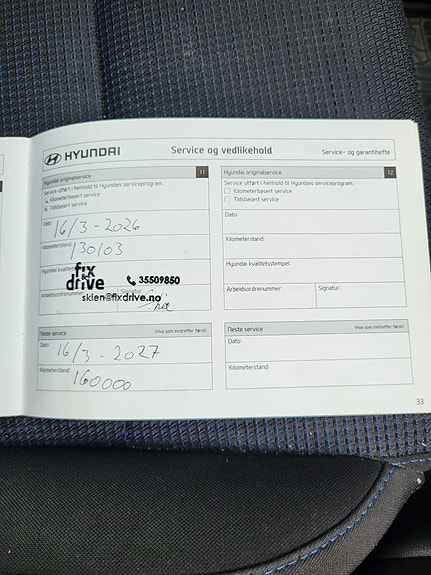 HYUNDAI
Service og vedlikehold
Service- og garantihefte
Hyundai originalservice 11
Service utført i henhold til Hyundais serviceprogram.
Kilometerbasert service
Tidsbasert service
Dato:
16/3-2026
Kilometerstand:
130103
Hyundai kvalitets
fix
drive
35509850
Arbeidsordrenummer:
Signatur:
skien@fixdrive.no
Neste service
(Hva som inntreffer først)
Dato:
16/3-2027
Kilometerstand:
160000
Hyundai originalservice 12
Service utført i henhold til Hyundais serviceprogram.
Kilometerbasert service
Tidsbasert service
Dato:
Kilometerstand:
Hyundai kvalitetsstempel:
Arbeidsordrenummer:
Signatur:
Neste service
(Hva som inntreffer først)
Dato:
Kilometerstand:
33